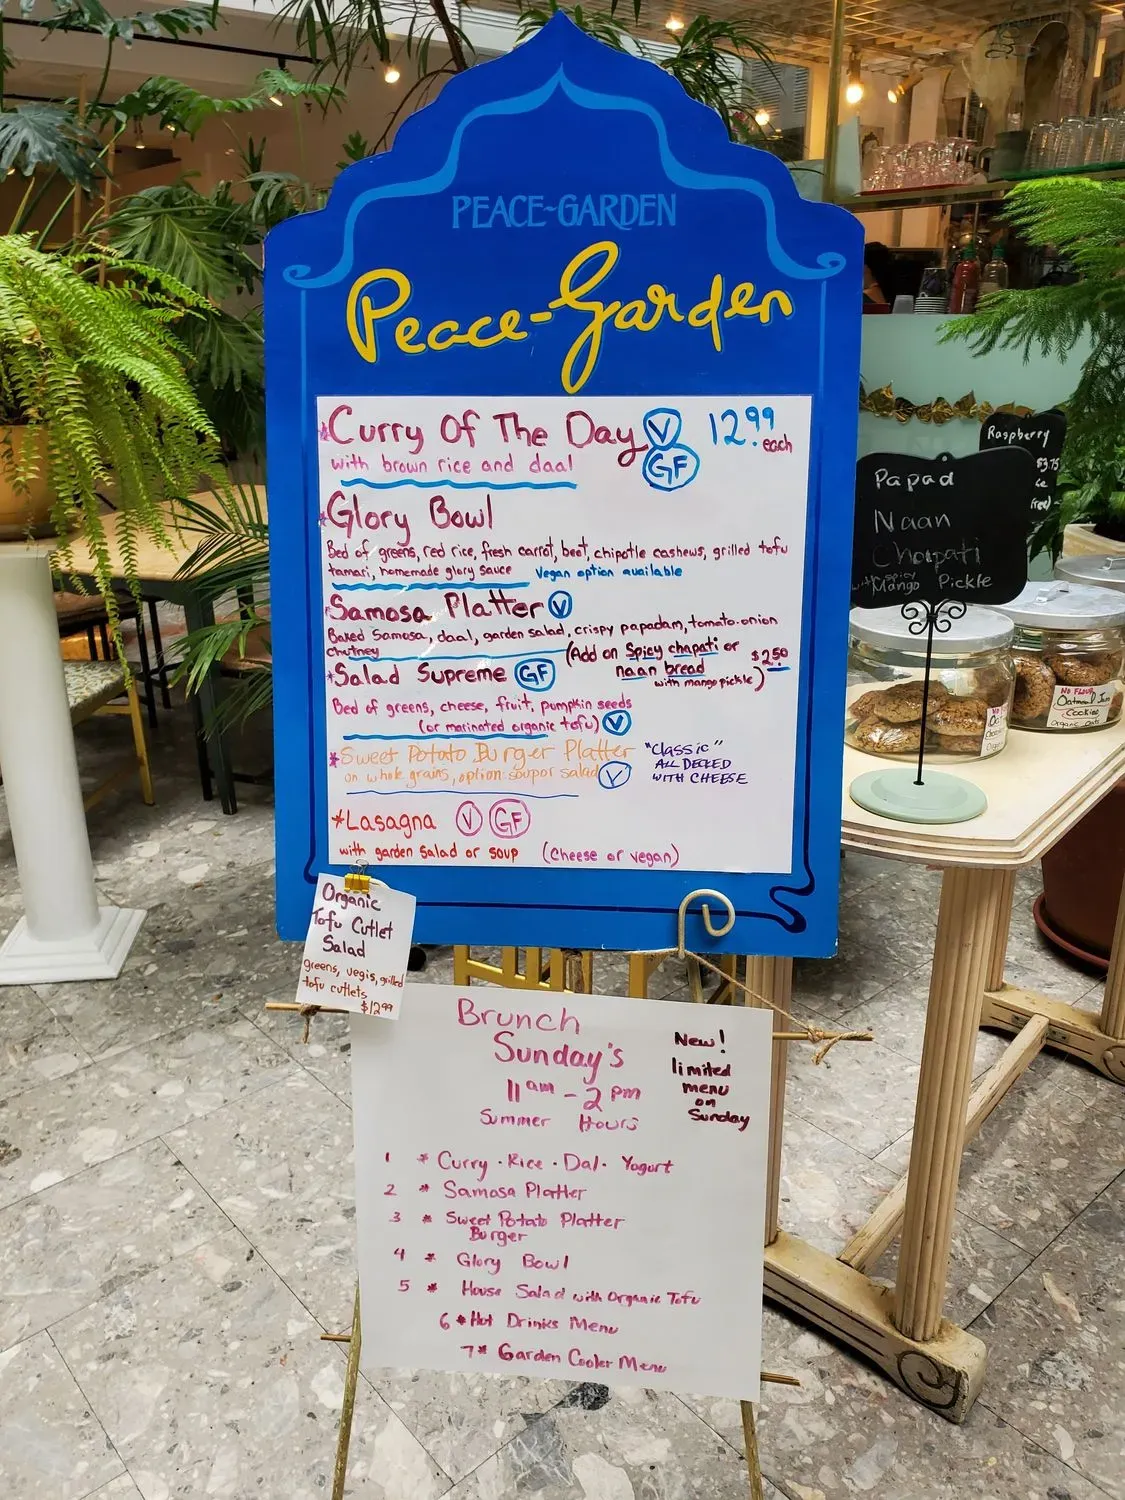 PEACE-GARDEN
Peace-Garden
*Curry Of The Day V 12.99 each
with brown rice and daal GF
*Glory Bowl
Bed of greens, red rice, fresh carrot, beet, chipotle cashews, grilled tofu
tamari, homemade glory sauce Vegan option available
Samosa Platter V
Baked Samosa, daal, garden salad, crispy papadam, tomato-onion
chutney
(Add on Spicy chapati or
naan bread $2.50
with mango pickle)
*Salad Supreme GF
Bed of greens, cheese, fruit, pumpkin seeds
(or marinated organic tofu) V
*Sweet Potato Burger Platter
on whole grains, option: soup or salad V
"Classic"
ALL DECKED
WITH CHEESE
*Lasagna V GF
with garden salad or soup (cheese or vegan)
Organic
Tofu Cutlet
Salad
greens, vegis, grilled
tofu cutlets
$12.99
Brunch
Sunday's
11am - 2pm
Summer Hours
New!
limited
menu
on
Sunday
1 * Curry · Rice · Dal · Yogurt
2 * Samosa Platter
3 * Sweet Potato Platter
Burger
4 * Glory Bowl
5 * House Salad with Organic Tofu
6 * Hot Drinks Menu
7 * Garden Cooler Menu
Raspberry
$3.75
free)
Papad
Naan
Chapati
with spicy
Mango Pickle
NO FLOUR
Oatmeal Jam
Cookies
Organic Oats